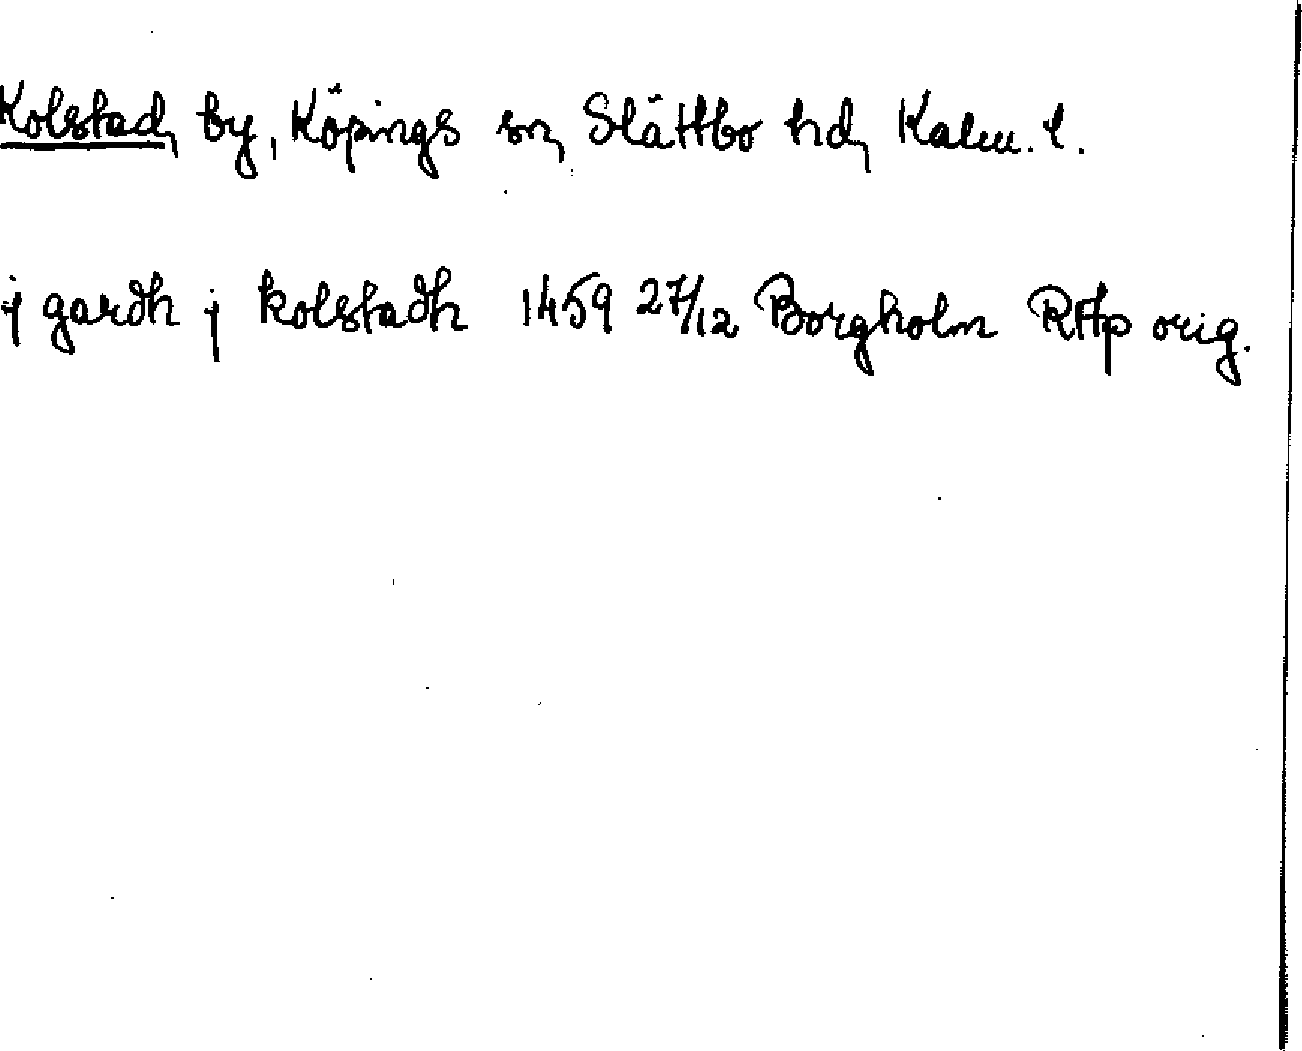 Kolstad, by, Köpings sn, Slättbo hd, Kalm. l.
j gardh j kolstadh 1459 27/12 Borgholm RAp orig.